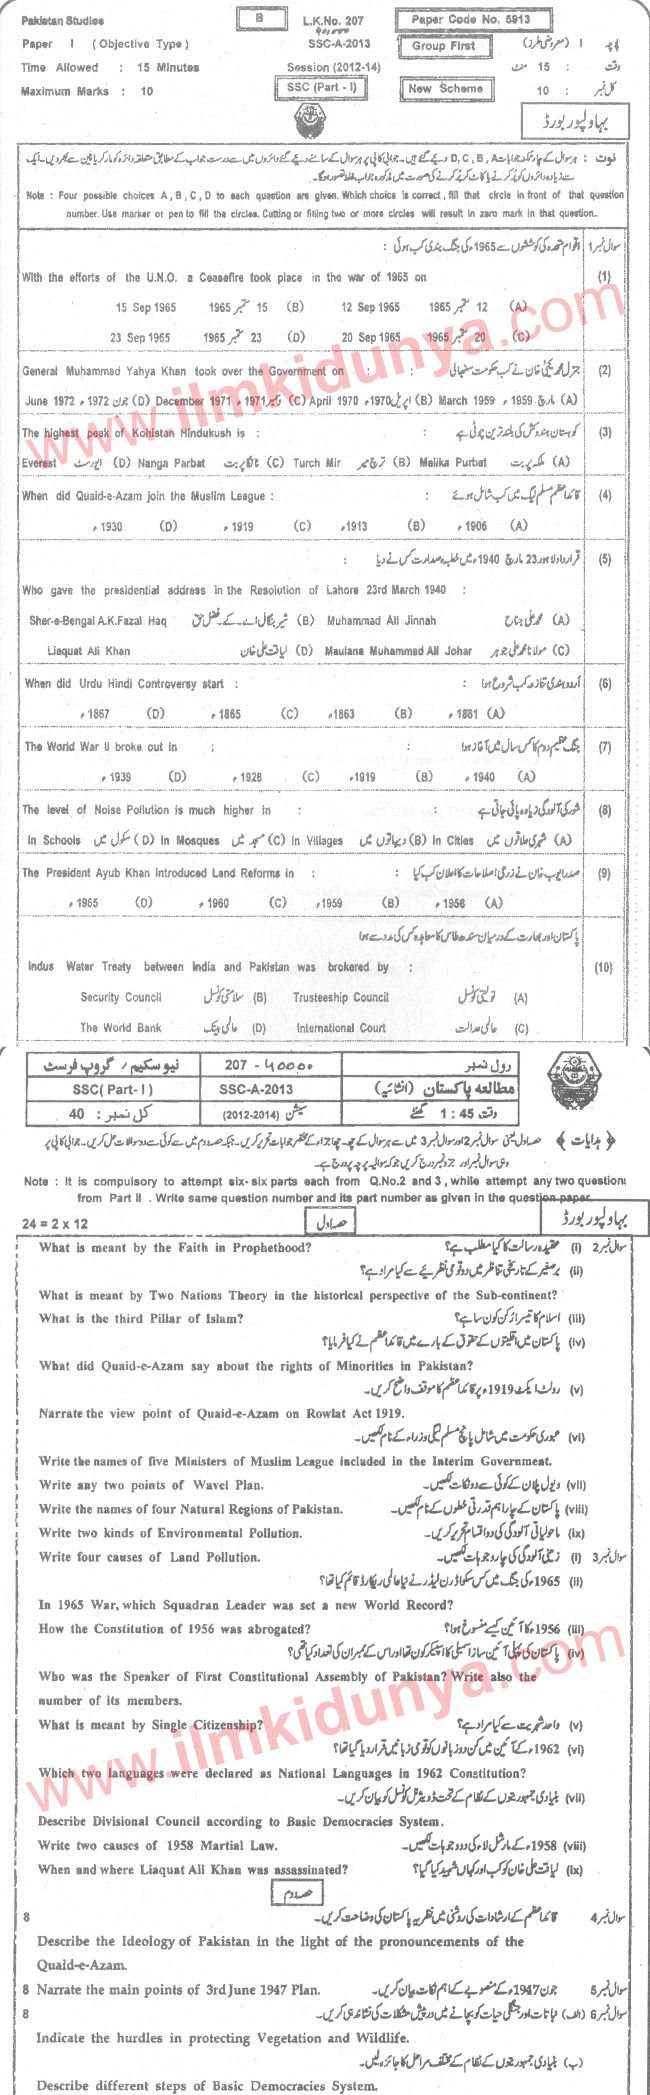 Pakistan Studies B L.K.No. 207 Paper Code No. 5913
Paper I (Objective Type) SSC-A-2013 Group First I (معروضی طرز) پرچہ
Time Allowed : 15 Minutes Session (2012-14) وقت : 15 منٹ
Maximum Marks : 10 SSC (Part - I) New Scheme کل نمبر : 10
بہاولپور بورڈ
نوٹ : ہر سوال کے چار ممکنہ جوابات D, C, B, A دیے گئے ہیں۔ جوابی کاپی پر ہر سوال کے سامنے دیے گئے دائروں میں سے درست جواب کے مطابق متعلقہ دائرہ کو مارکر یا پین سے بھر دیں۔ ایک
سے زیادہ دائروں کو پُر کرنے یا کاٹ کر پُر کرنے کی صورت میں مذکورہ جواب غلط تصور ہوگا۔
Note : Four possible choices A , B , C , D to each question are given. Which choice is correct , fill that circle in front of that question
number. Use marker or pen to fill the circles. Cutting or filling two or more circles will result in zero mark in that question..
سوال نمبر 1 اقوام متحدہ کی کوششوں سے 1965ء کی جنگ بندی کب ہوئی :
With the efforts of the U.N.O. a Ceasefire took place in the war of 1965 on (1)
15 Sep 1965 15 ستمبر 1965 (B) 12 Sep 1965 12 ستمبر 1965 (A)
23 Sep 1965 23 ستمبر 1965 (D) 20 Sep 1965 20 ستمبر 1965 (C)
General Muhammad Yahya Khan took over the Government on : جنرل محمد یحییٰ خان نے کب حکومت سنبھالی : (2)
June 1972 جون 1972ء (D) December 1971 دسمبر 1971ء (C) April 1970 اپریل 1970ء (B) March 1959 مارچ 1959ء (A)
The highest peak of Kohistan Hindukush is : کوہستان ہندوکش کی بلند ترین چوٹی ہے : (3)
Everest ایورسٹ (D) Nanga Parbat نانگا پربت (C) Turch Mir ترچ میر (B) Malika Purbat ملکہ پربت (A)
When did Quaid-e-Azam join the Muslim League : قائداعظم مسلم لیگ میں کب شامل ہوئے : (4)
1930ء (D) 1919ء (C) 1913ء (B) 1906ء (A)
قرارداد لاہور 23 مارچ 1940ء میں خطبہ صدارت کس نے دیا : (5)
Who gave the presidential address in the Resolution of Lahore 23rd March 1940 :
Sher-e-Bengal A.K.Fazal Haq شیر بنگال اے۔کے۔فضل حق (B) Muhammad Ali Jinnah محمد علی جناح (A)
Liaquat Ali Khan لیاقت علی خان (D) Maulana Muhammad Ali Johar مولانا محمد علی جوہر (C)
When did Urdu Hindi Controversy start : اُردو ہندی تنازعہ کب شروع ہوا : (6)
1867ء (D) 1865ء (C) 1863ء (B) 1861ء (A)
The World War II broke out in : جنگ عظیم دوم کا کس سال میں آغاز ہوا : (7)
1939ء (D) 1928ء (C) 1919ء (B) 1940ء (A)
The level of Noise Pollution is much higher in : شور کی آلودگی زیادہ پائی جاتی ہے : (8)
In Schools سکول میں (D) In Mosques مسجد میں (C) In Villages دیہاتوں میں (B) In Cities شہری علاقوں میں (A)
The President Ayub Khan introduced Land Reforms in : صدر ایوب خان نے زرعی اصلاحات کا اعلان کب کیا : (9)
1965ء (D) 1960ء (C) 1959ء (B) 1958ء (A)
پاکستان اور بھارت کے درمیان سندھ طاس کا معاہدہ کس کی مدد سے ہوا
Indus Water Treaty between India and Pakistan was brokered by : (10)
Security Council سلامتی کونسل (B) Trusteeship Council تولیتی کونسل (A)
The World Bank عالمی بینک (D) International Court عالمی عدالت (C)
نیو سکیم / گروپ فرسٹ 207 - 40000 رول نمبر
SSC( Part- I ) SSC-A-2013 مطالعہ پاکستان (انشائیہ)
کل نمبر : 40 (2012-2014) سیشن وقت 1 : 45 گھنٹے
﴿ ہدایات ﴾ حصہ اول یعنی سوال نمبر 2 اور سوال نمبر 3 میں سے ہر سوال کے چھ۔ چھ اجزاء کے مختصر جوابات تحریر کریں۔ جبکہ حصہ دوم میں سے کوئی سے دو سوالات حل کریں۔ جوابی کاپی پر
وہی سوال نمبر اور جز نمبر درج کریں جو کہ سوالیہ پرچہ پر درج ہے۔
Note : It is compulsory to attempt six-six parts each from Q.No.2 and 3 , while attempt any two questions
from Part II . Write same question number and its part number as given in the question paper.
24 = 2 x 12 حصہ اول بہاولپور بورڈ
What is meant by the Faith in Prophethood? عقیدہ رسالت کا کیا مطلب ہے؟ (i) سوال نمبر 2
برصغیر کے تاریخی تناظر میں دو قومی نظریے سے کیا مراد ہے؟ (ii)
What is meant by Two Nations Theory in the historical perspective of the Sub-continent?
What is the third Pillar of Islam? اسلام کا تیسرا رکن کون سا ہے؟ (iii)
پاکستان میں اقلیتوں کے حقوق کے بارے میں قائداعظم نے کیا فرمایا؟ (iv)
What did Quaid-e-Azam say about the rights of Minorities in Pakistan?
رولٹ ایکٹ 1919ء پر قائداعظم کا موقف واضح کریں۔ (v)
Narrate the view point of Quaid-e-Azam on Rowlat Act 1919.
عبوری حکومت میں شامل پانچ مسلم لیگی وزراء کے نام لکھیں۔ (vi)
Write the names of five Ministers of Muslim League included in the Interim Government.
Write any two points of Wavel Plan. ویول پلان کے کوئی سے دو نکات لکھیں۔ (vii)
Write the names of four Natural Regions of Pakistan. پاکستان کے چار اہم قدرتی خطوں کے نام لکھیں۔ (viii)
Write two kinds of Environmental Pollution. ماحولیاتی آلودگی کی دو اقسام تحریر کریں۔ (ix)
Write four causes of Land Pollution. زمینی آلودگی کی چار وجوہات لکھیں۔ (i) سوال نمبر 3
1965ء کی جنگ میں کس سکواڈرن لیڈر نے نیا عالمی ریکارڈ قائم کیا تھا؟ (ii)
In 1965 War, which Squadran Leader was set a new World Record?
How the Constitution of 1956 was abrogated? 1956ء کا آئین کیسے منسوخ ہوا؟ (iii)
پاکستان کی پہلی آئین ساز اسمبلی کا اسپیکر کون تھا اور اس کے ممبران کی تعداد کیا تھی؟ (iv)
Who was the Speaker of First Constitutional Assembly of Pakistan? Write also the
number of its members.
What is meant by Single Citizenship? واحد شہریت سے کیا مراد ہے؟ (v)
1962ء کے آئین میں کن دو زبانوں کو قومی زبانیں قرار دیا گیا تھا؟ (vi)
Which two languages were declared as National Languages in 1962 Constitution?
بنیادی جمہوریتوں کے نظام کے تحت ڈویژنل کونسل کو بیان کریں۔ (vii)
Describe Divisional Council according to Basic Democracies System.
Write two causes of 1958 Martial Law. 1958ء کے مارشل لاء کی دو وجوہات لکھیں۔ (viii)
When and where Liaquat Ali Khan was assassinated? لیاقت علی خان کو کب اور کہاں شہید کیا گیا؟ (ix)
حصہ دوم
8 قائداعظم کے ارشادات کی روشنی میں نظریہ پاکستان کی وضاحت کریں۔ سوال نمبر 4
Describe the Ideology of Pakistan in the light of the pronouncements of the
Quaid-e-Azam.
8 Narrate the main points of 3rd June 1947 Plan. جون 1947ء کے منصوبے کے اہم نکات بیان کریں۔ سوال نمبر 5
8 نباتات اور جنگلی حیات کو بچانے میں درپیش مشکلات کی نشاندہی کریں۔ (الف) سوال نمبر 6
Indicate the hurdles in protecting Vegetation and Wildlife.
بنیادی جمہوریتوں کے نظام کے مختلف مراحل کا جائزہ لیں۔ (ب)
Describe different steps of Basic Democracies System.
www.ilmkidunya.com
www.ilmkidunya.com